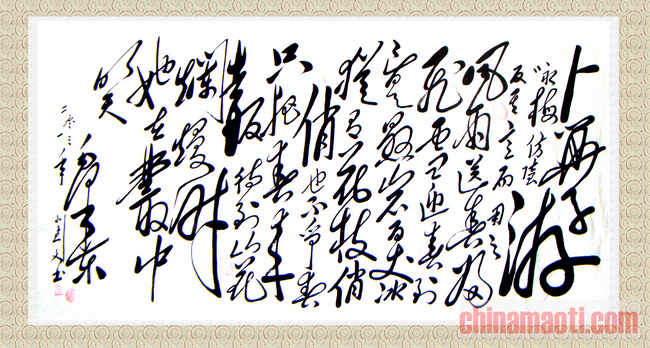 卜算子
咏梅 仿陆游
反其意而用之
风雨送春归
飞雪迎春到
已是悬崖百丈冰
犹有花枝俏
俏也不争春
只把春来
报 待到山花
烂熳时
她在丛中
笑
毛泽东
chinamaoti.com